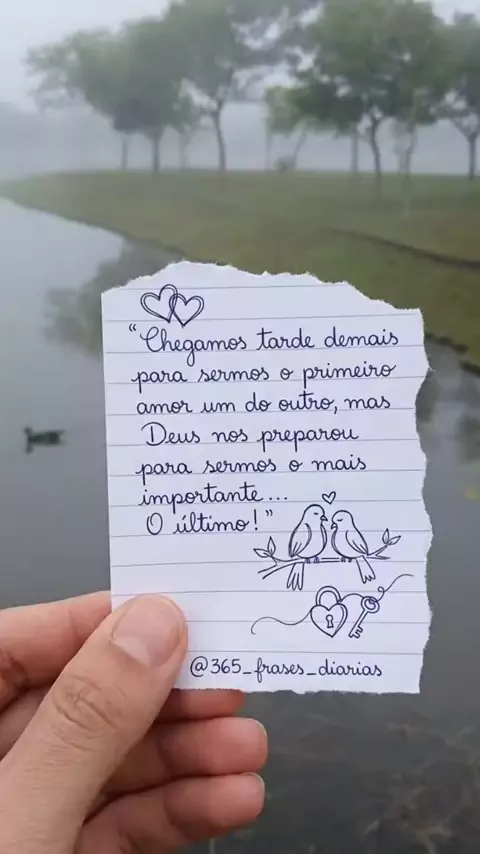 “Chegamos tarde demais
para sermos o primeiro
amor um do outro, mas
Deus nos preparou
para sermos o mais
importante...
O último!”
@365_frases_diarias